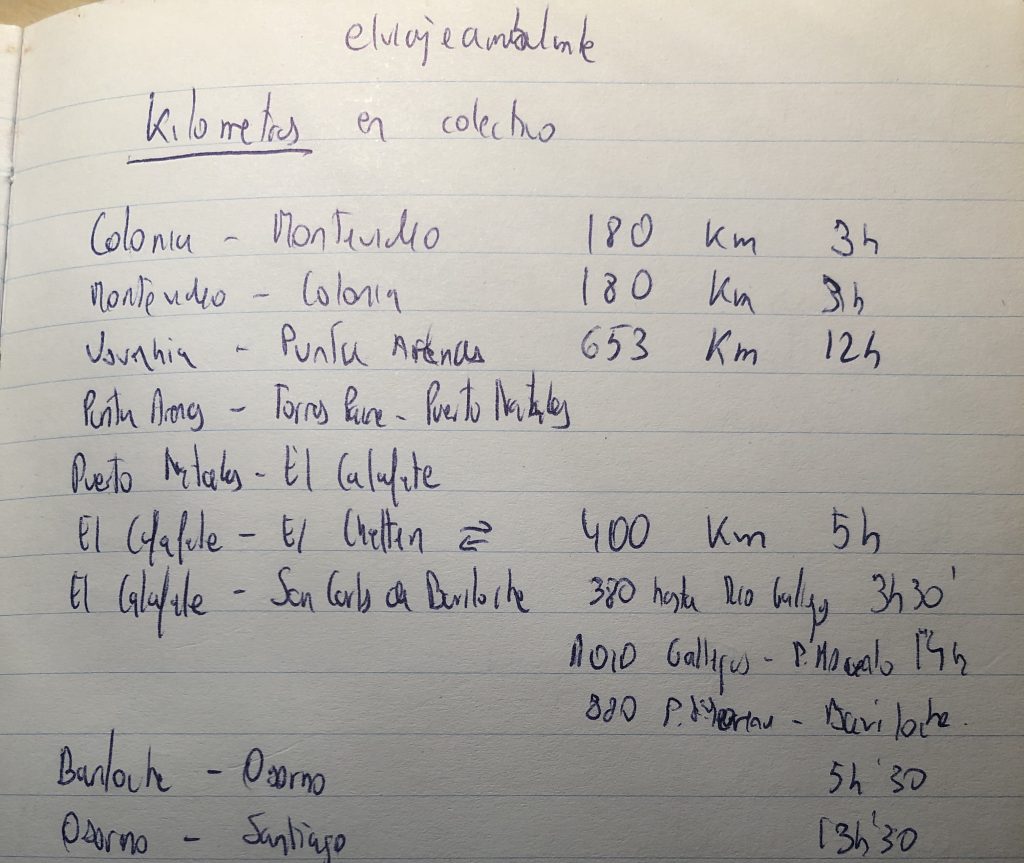 elviajeambulante
Kilometros en colectivo
Colonia - Montevideo 180 Km 3h
Montevideo - Colonia 180 Km 3h
Usuahia - Punta Arenas 653 Km 12h
Punta Arenas - Torres Paine - Puerto Natales
Puerto Natales - El Calafate
El Calafate - El Chalten ⇄ 400 Km 5h
El Calafate - San Carlos de Bariloche 380 hasta Rio Gallegos 3h30'
1010 Gallegos - P. 14h
880 P. - Bariloche.
Bariloche - Osorno 5h'30
Osorno - Santiago 13h'30